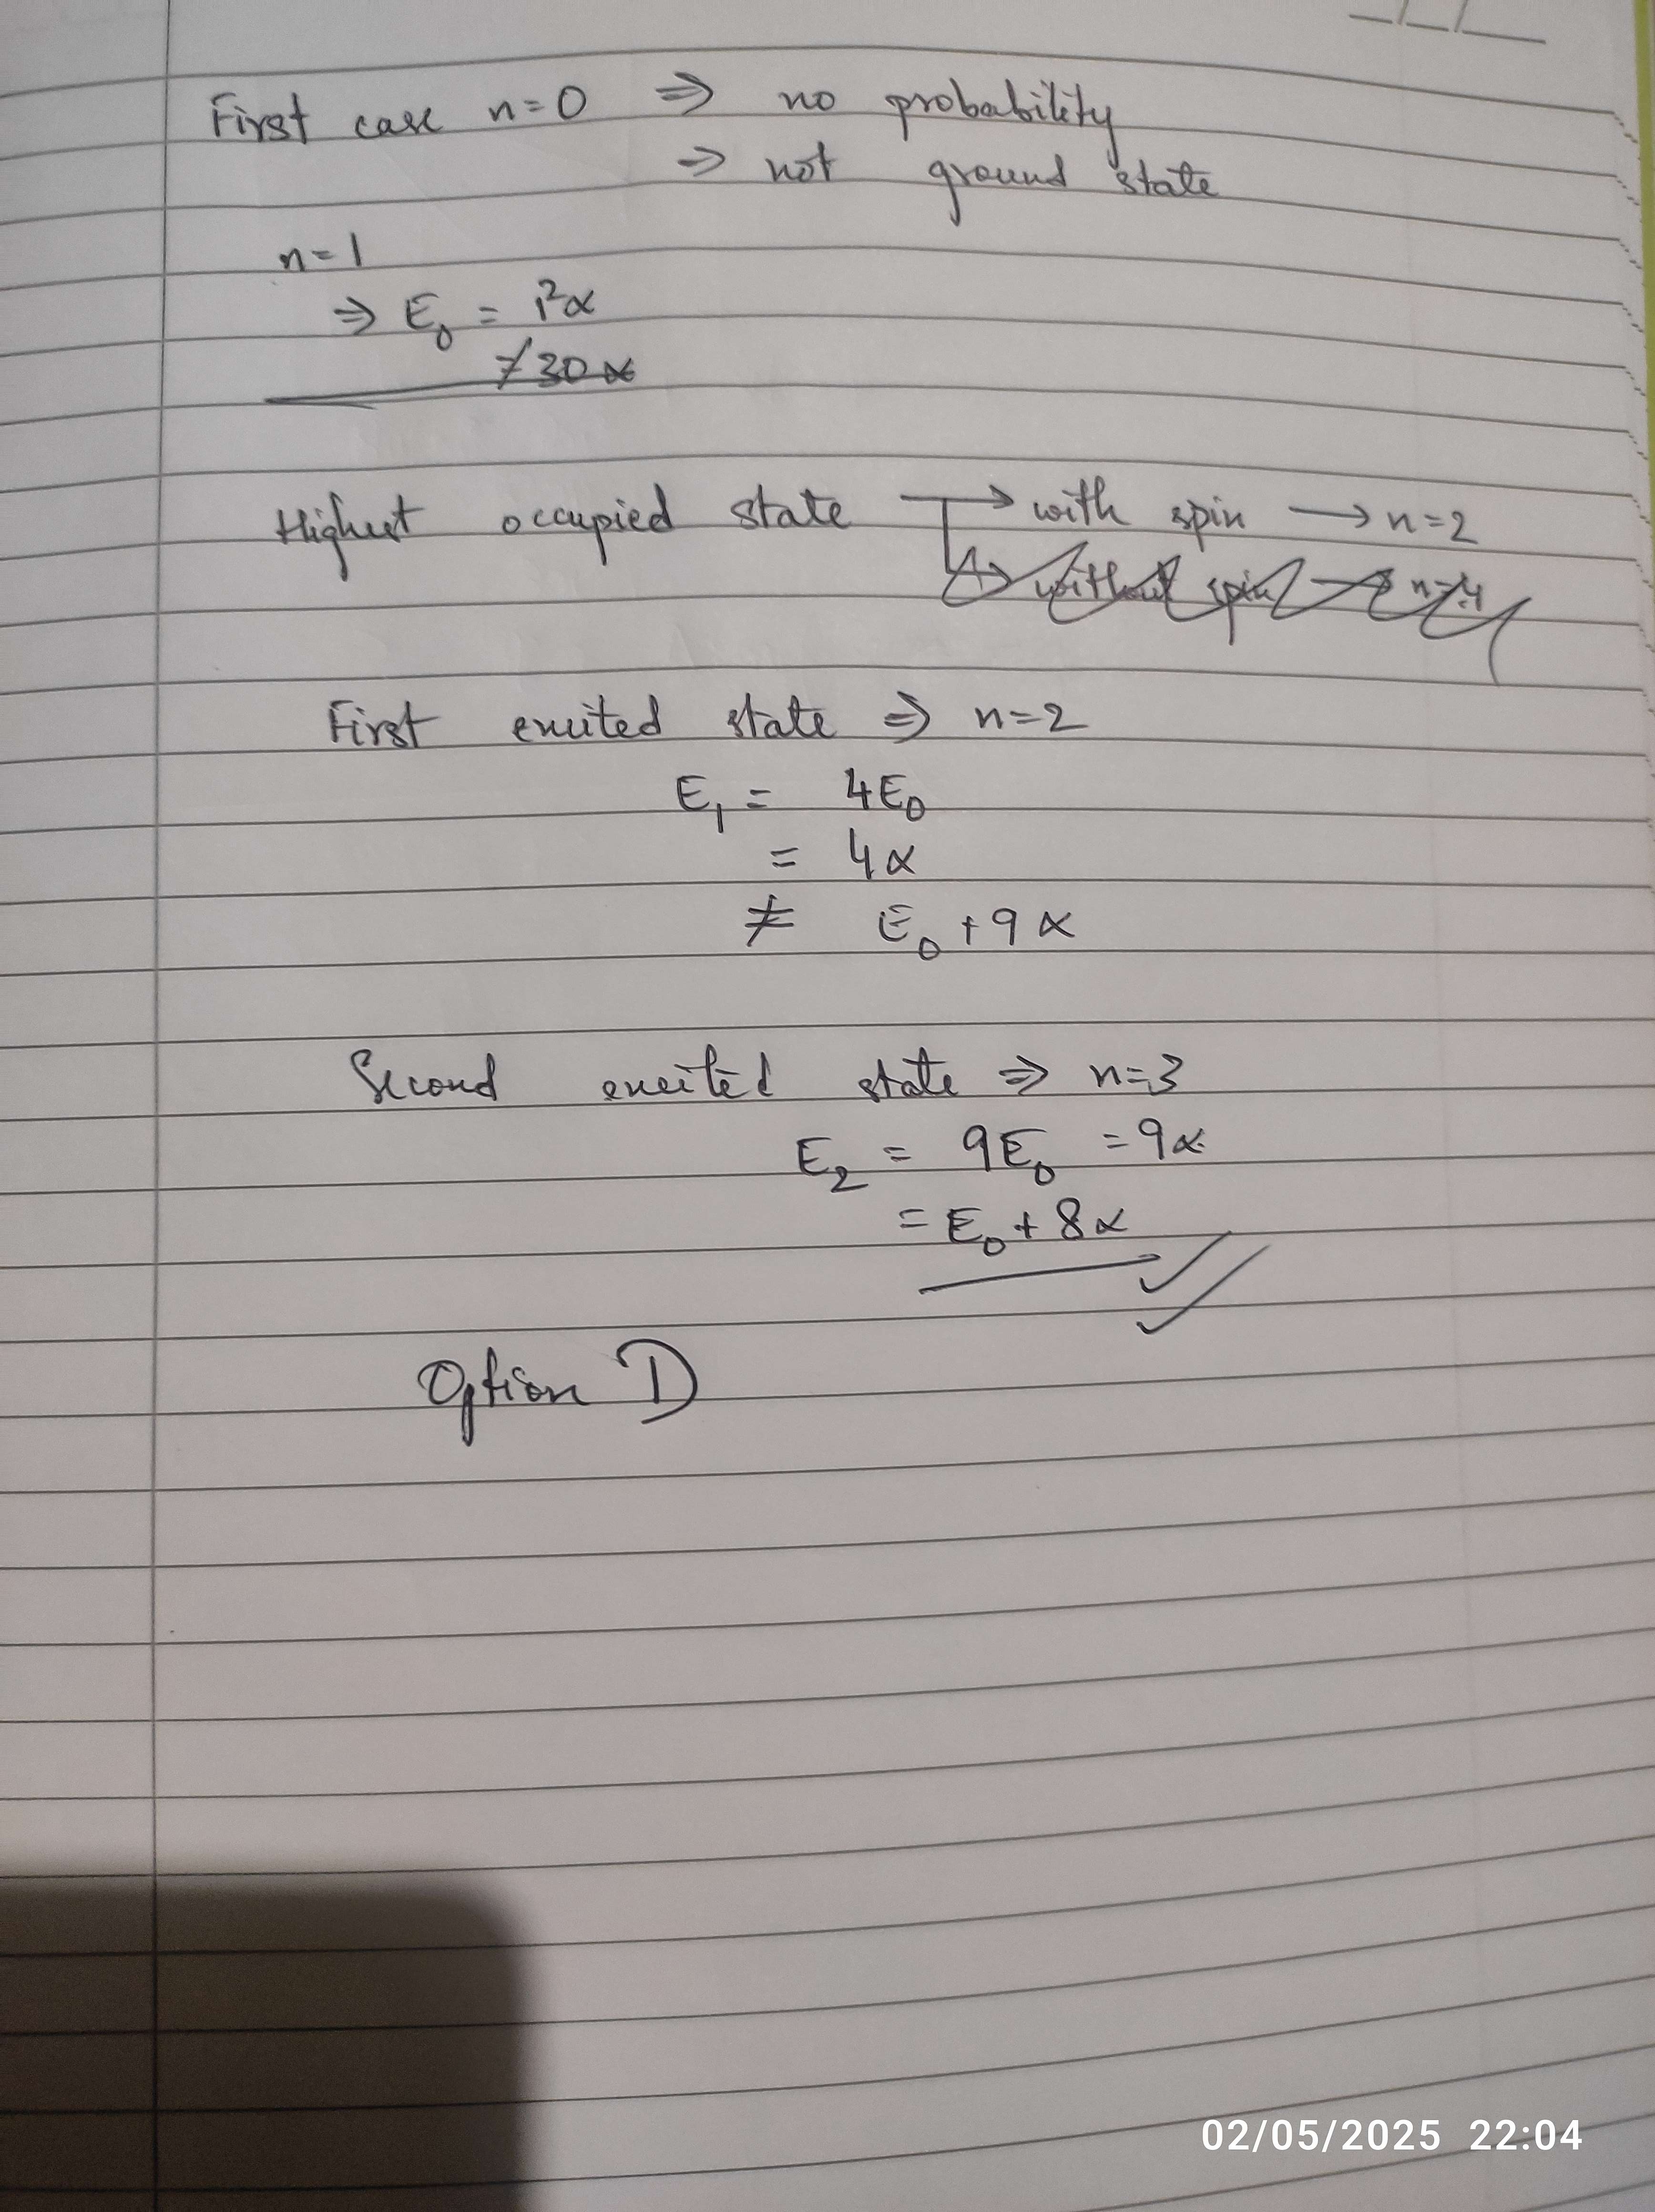 First case n=0 ⇒ no probability
⇒ not ground state
n=1
⇒ E₀ = 1²α
≠ 30α
Highest occupied state → with spin → n=2
→ without spin → n=4
First excited state ⇒ n=2
E₁ = 4E₀
= 4α
≠ E₀ + 9α
Second excited state ⇒ n=3
E₂ = 9E₀ = 9α
= E₀ + 8α
Option D
02/05/2025 22:04